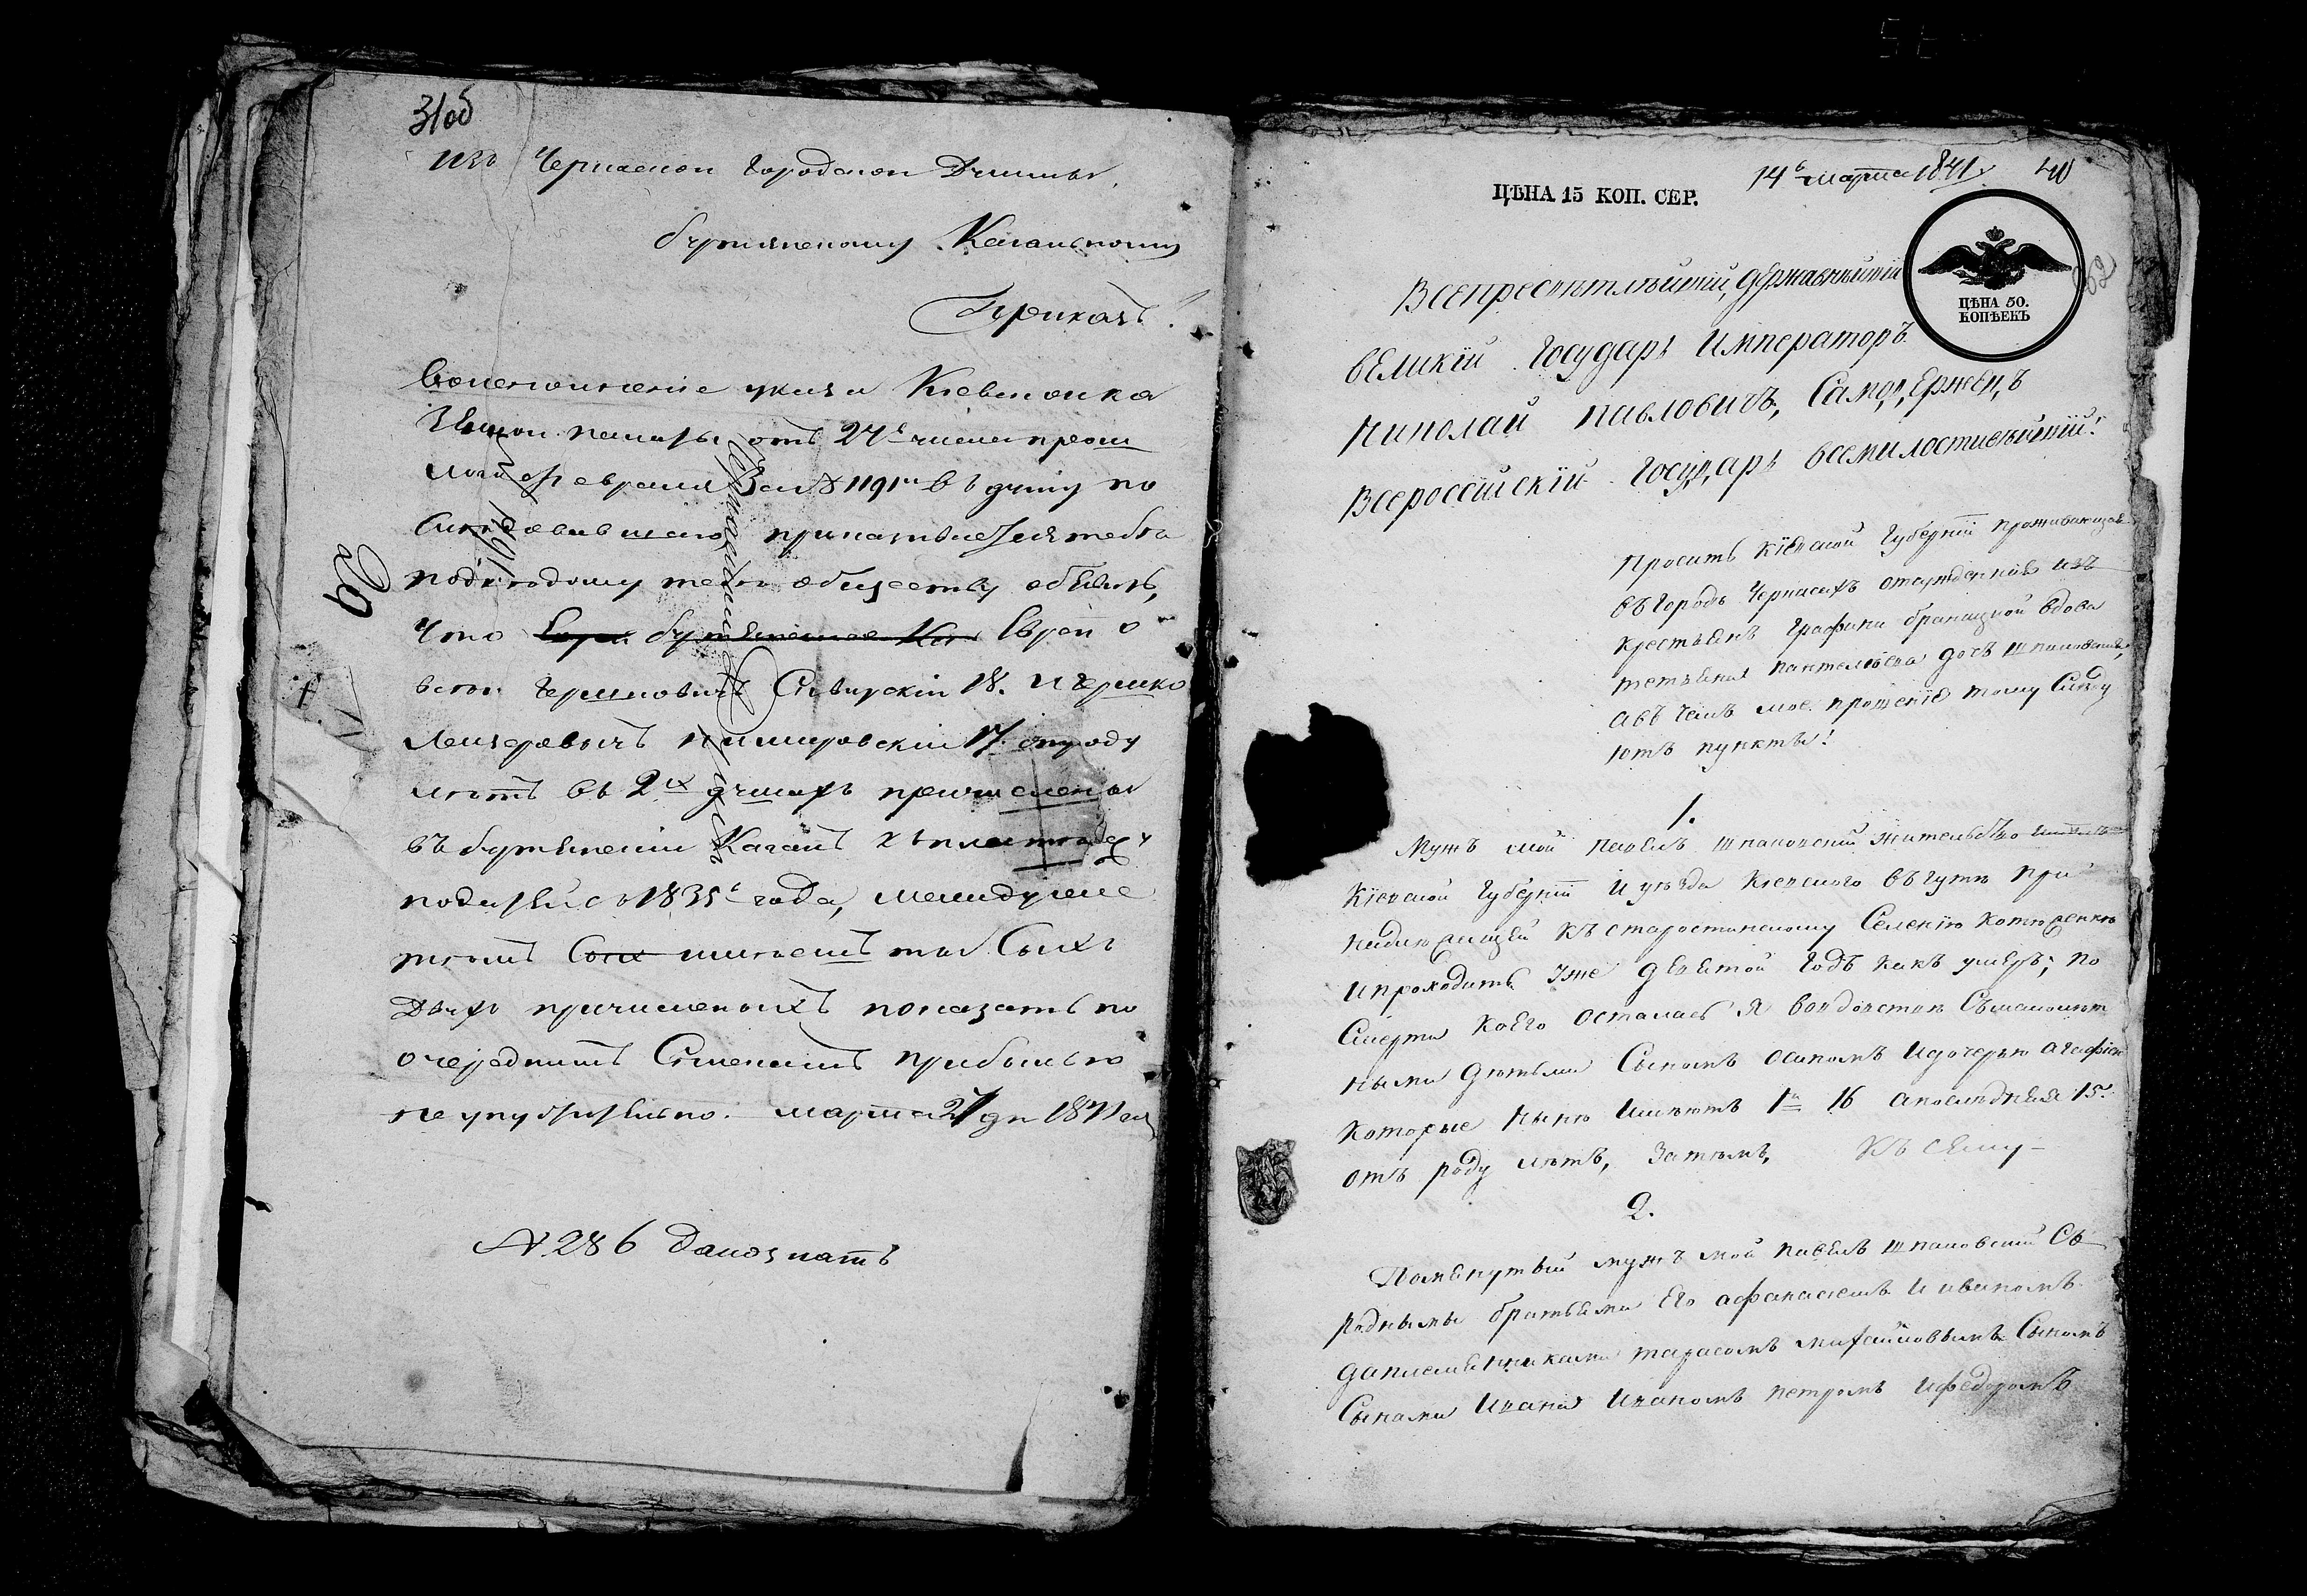 31об
Изъ Черкаской Городской Думы
бужянскому Кагальному
Приказъ!
Воисполненіе указа Кіевскои ка
зенной палаты отъ 27г числа прош
лого февраля За № 1191м въ думу по
следовавшаго, приказываетъ тебѣ
подъ годому твоему обществу объявить,
что Евреи
Герш​ковичъ Сквирскій 18. и Гершко
Лейзеровичъ Немировскій 17. отроду
лѣтъ въ 2хъ душахъ причислены
въ бужянскій Кагалъ къ платежу
податей съ 1835г года,
тѣмъ имѣешъ ты Сихъ
Двухъ причисленыхъ показать по
очереднымъ Спискамъ прибылью
неупустительно. марта 27 дн 1841 год
№ 286 Далознать
29
14г марта 1841г
40
52
ЦѢНА 15 КОП. СЕР.
ЦѢНА 50.
КОПѢЕКЪ
Всепресвѣтлѣйшій, державнѣйшій
великій Государь Императоръ
Николай Павловичъ, Самодержецъ
Всероссійскій Государь всемилостивѣйшій!
Проситъ Кіевской Губерніи проживающая
въ городѣ Черкасахъ отсужденная изъ
крестьянъ Графини браницкой вдова
тетьяна Пантелѣева дочь шпаковская,
а въ чемъ мое прошеніе тому Слѣду
ютъ пункты!
1.
Мужъ мой павелъ шпаковскій жительство
Кіевской Губерніи и уѣзда Кіевского въ гутѣ при
надлежащей къ старостинскому Селенію
ипроходитъ уже девятой годъ какъ умеръ; по
смерти коего осталась я вовдовствѣ съ малолѣт
ными дѣтьми Сыномъ осипомъ идочерью агафіею
Которые нынѣ имѣютъ 1й 16 апослѣдняя 15.
отъ роду лѣтъ, Затѣмъ, Къ сему —
2.
Помянутый мужъ мой павелъ шпаковскій Съ
родными братьями Его афанасіемъ и
даплемянниками тарасомъ михайловымъ Сыномъ
Сынами Ивана Иваномъ петромъ ифедоромъ